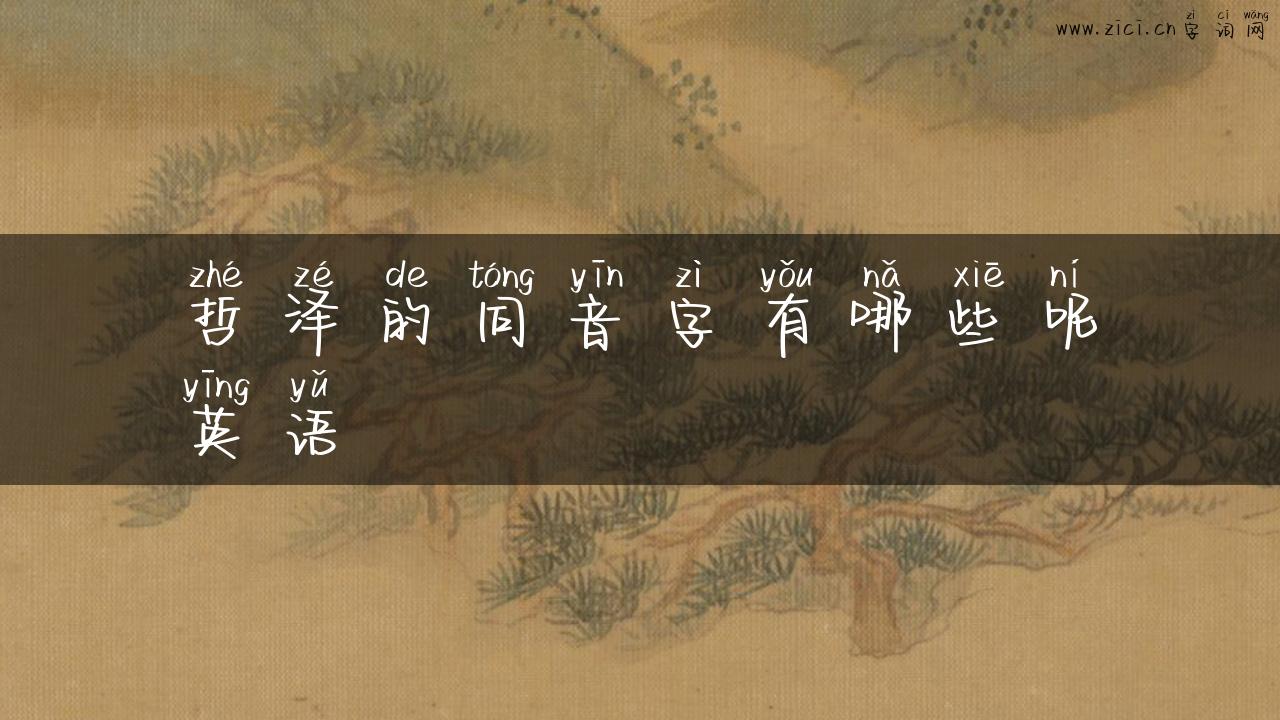 zì cí wǎng
www.zici.cn 字 词 网
zhé zé de tóng yīn zì yǒu nǎ xiē ní
哲 泽 的 同 音 字 有 哪 些 呢
yīng yǔ
英 语